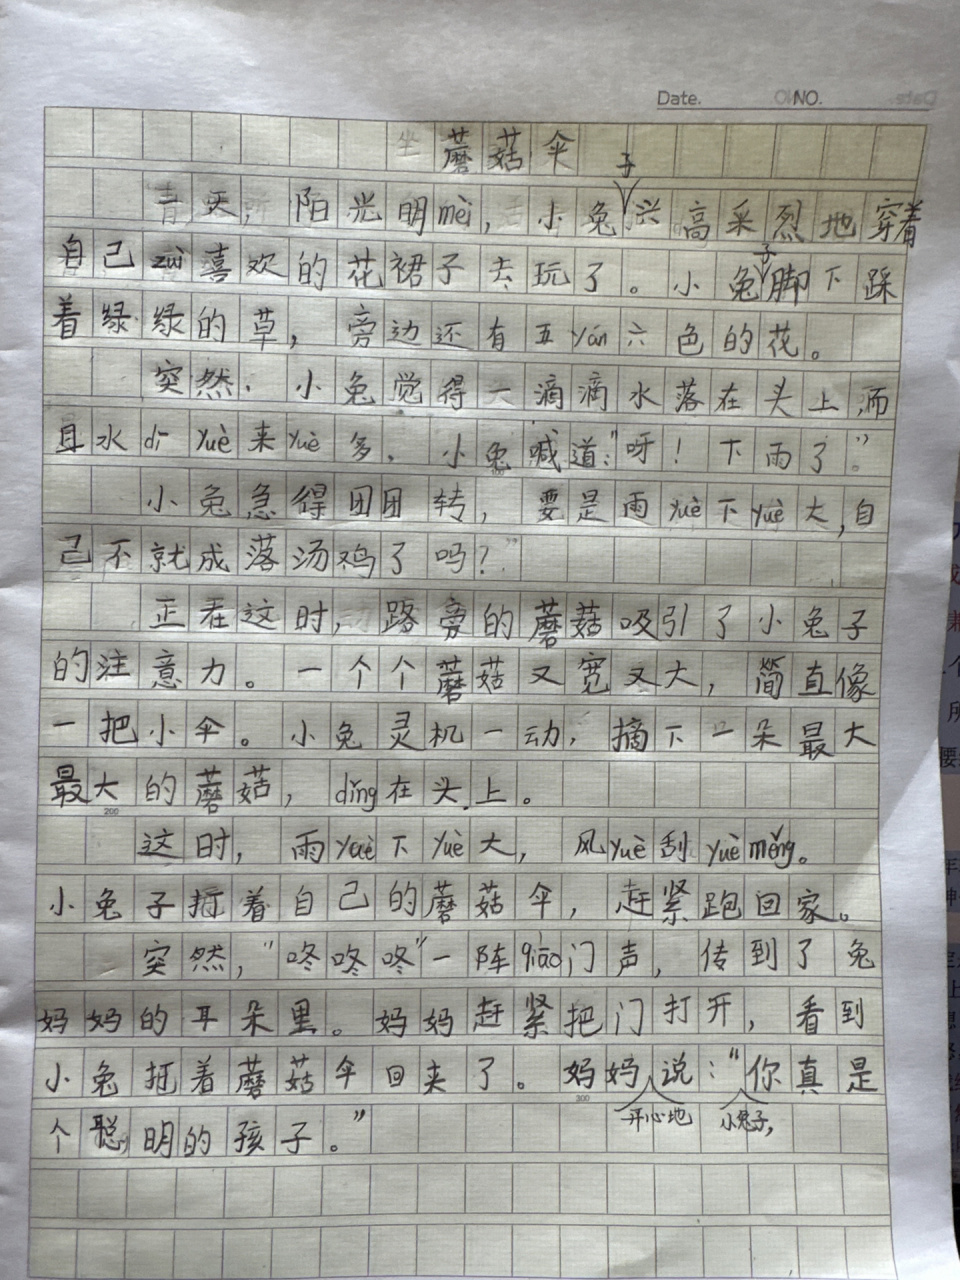 Date. NO.
蘑菇伞
春天，阳光明mèi，小兔子兴高采烈地穿着
自己zuì喜欢的花裙子去玩了。小兔子脚下踩
着绿绿的草，旁边还有五yán六色的花。
突然，小兔觉得一滴滴水落在头上，而
且水dī yuè来yuè多，小兔喊道："呀！下雨了。"
小兔急得团团转，要是雨yuè下yuè大，自
己不就成落汤鸡了吗？"
正在这时，路旁的蘑菇吸引了小兔子
的注意力。一个个蘑菇又宽又大，简直像
一把小伞。小兔灵机一动，摘下一朵最大
最大的蘑菇，dǐng在头上。
这时，雨yuè下yuè大，风yuè刮yuè měng。
小兔子挋着自己的蘑菇伞，赶紧跑回家。
突然，"咚咚咚"一阵qiāo门声，传到了兔
妈妈的耳朵里。妈妈赶紧把门打开，看到
小兔挋着蘑菇伞回来了。妈妈开心地说："小兔子，你真是
个聪明的孩子。"